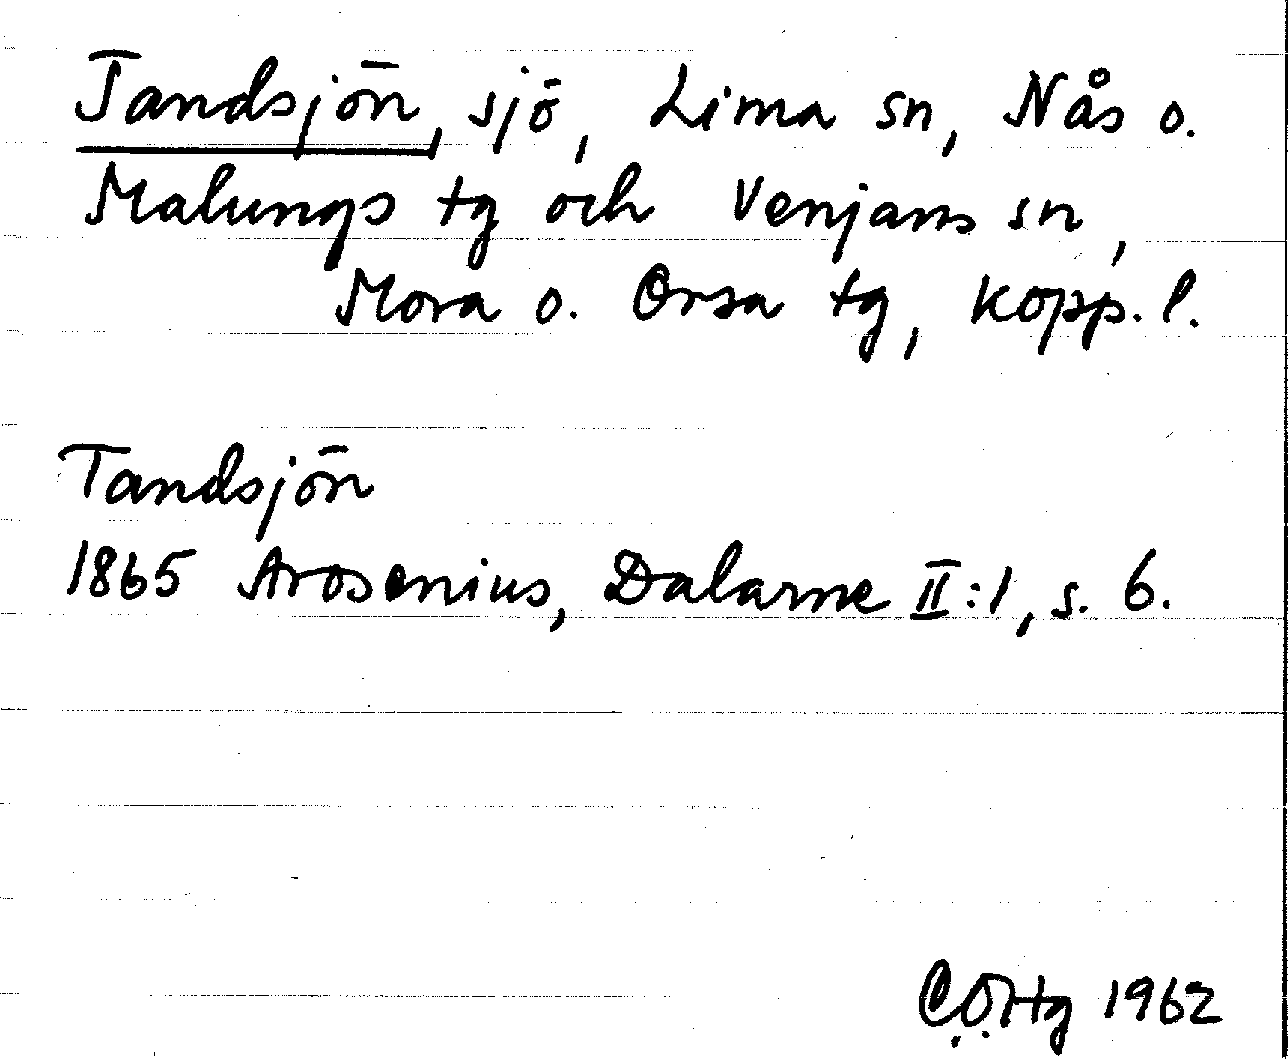 Tandsjön, sjö, Lima sn, Nås o.
Malungs tg och Venjans sn,
Mora o. Orsa tg, Kopp. l.
Tandsjön
1865 Arosenius, Dalarne II:1, s. 6.
1962